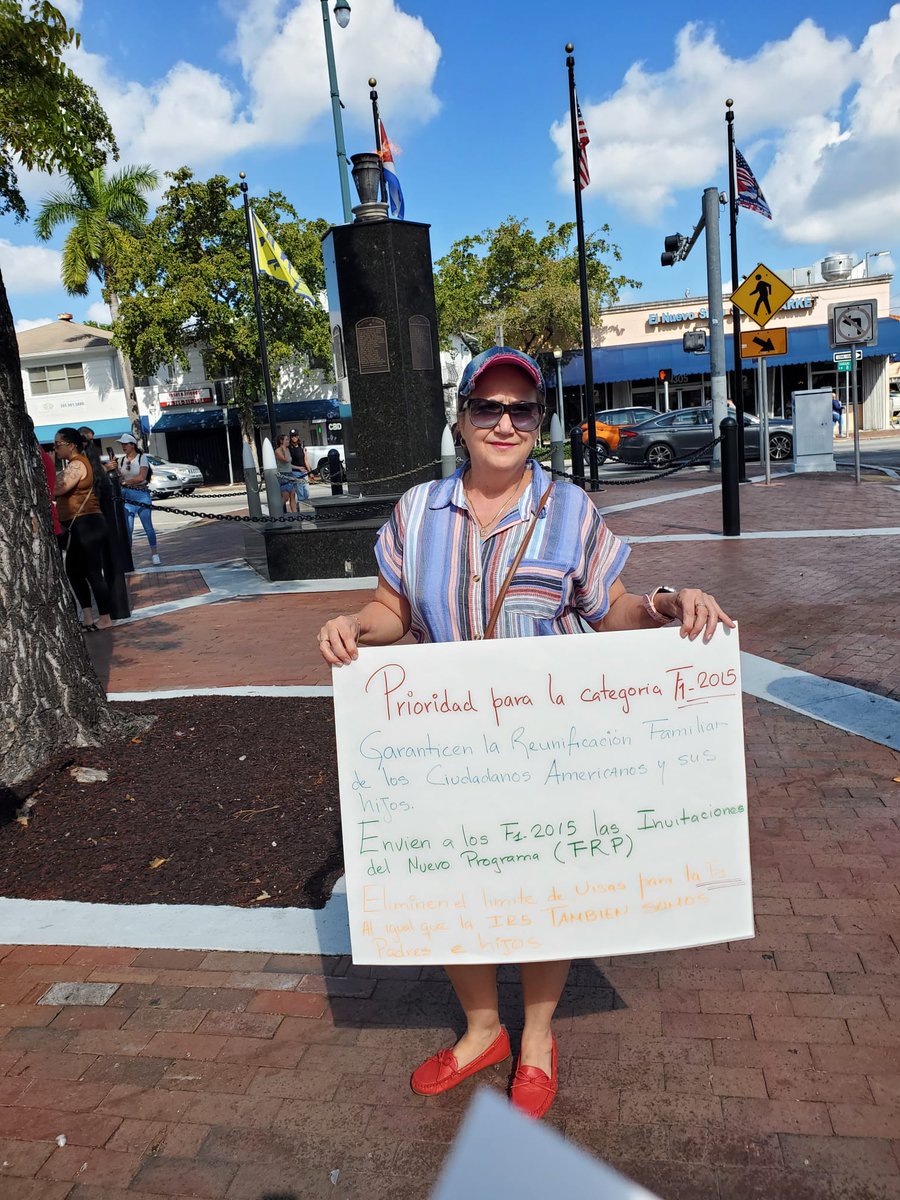 Prioridad para la categoria F1-2015
Garanticen la Reunificación Familiar
de los Ciudadanos Americanos y sus
hijos.
Envien a los F1-2015 las Invitaciones
del Nuevo Programa (FRP)
Eliminen el limite de visas para la F1
Al igual que la IR5 TAMBIEN somos
Padres e hijos
El Nuevo
CBD